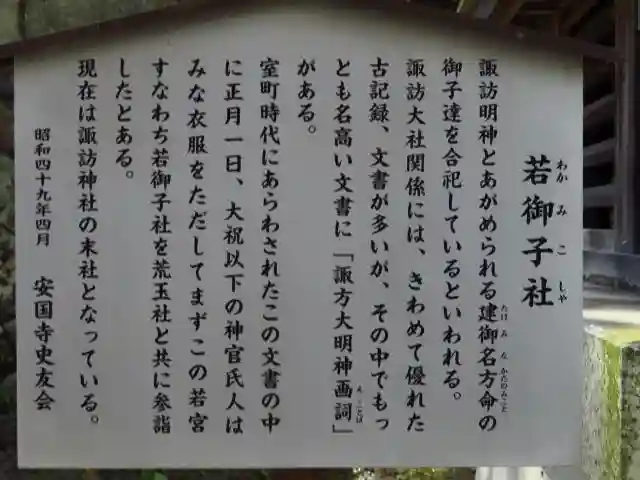 若御子社
わかみこしゃ
諏訪明神とあがめられる建御名方命の
たけみなかたのみこと
御子達を合祀しているといわれる。
諏訪大社関係には、きわめて優れた
古記録、文書が多いが、その中でもっ
とも名高い文書に「諏方大明神画詞」
えことば
がある。
室町時代にあらわされたこの文書の中
に正月一日、大祝以下の神官氏人は
みな衣服をただしてまずこの若宮
すなわち若御子社を荒玉社と共に参詣
したとある。
現在は諏訪神社の末社となっている。
昭和四十九年四月 安国寺史友会